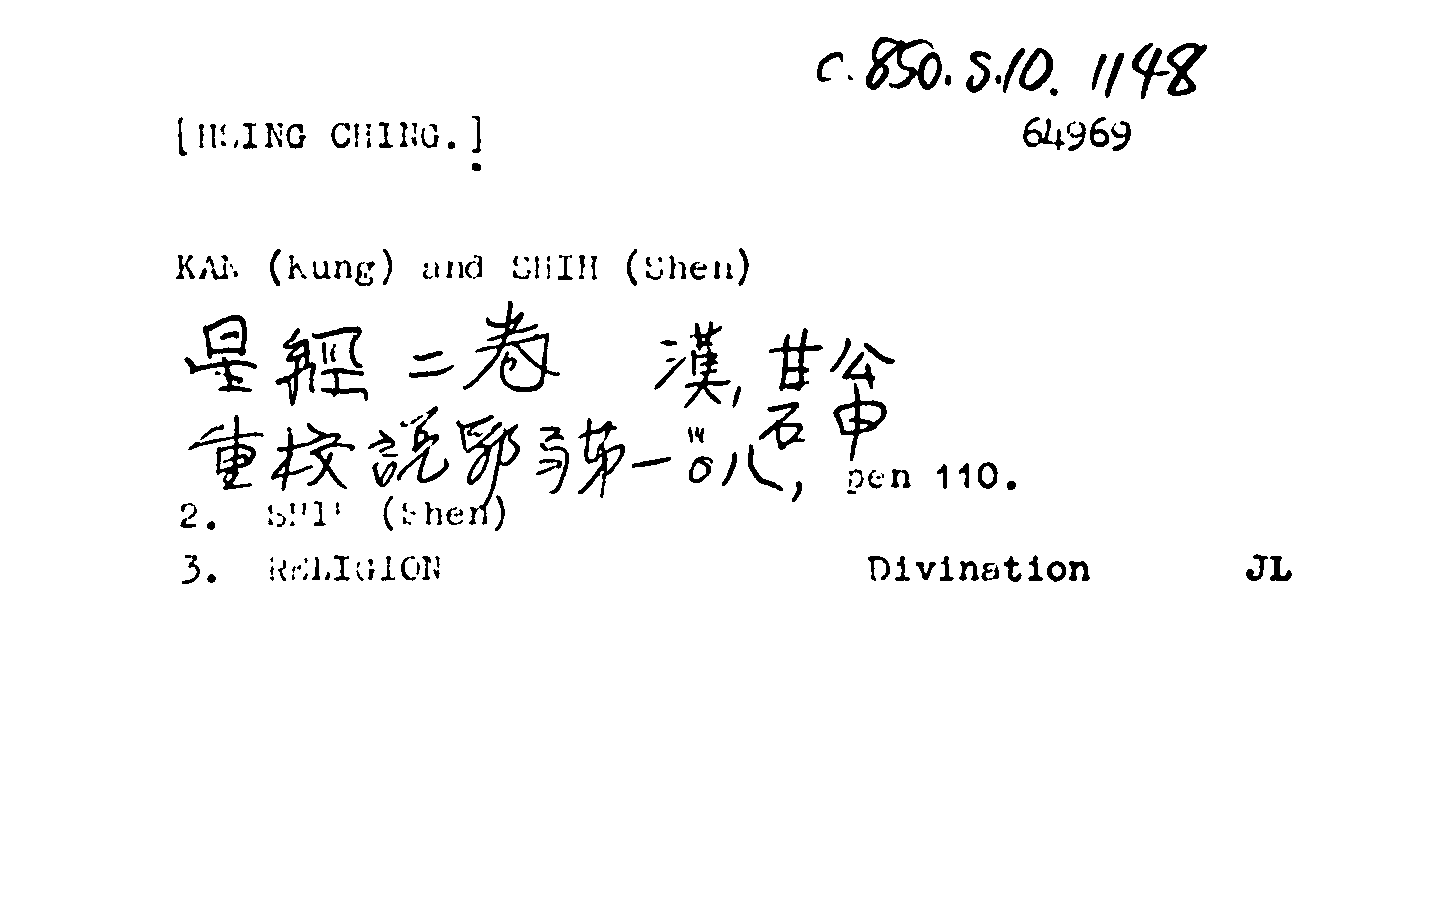 C.850.S.10. 1148
[HSING CHING.]
64969
KAN (Kung) and SHIH (Shen)
星經二卷 漢, 甘公
石申
重校說郛弓第一〇八, pen 110.
2. SHIH (Shen)
3. RELIGION Divination JL